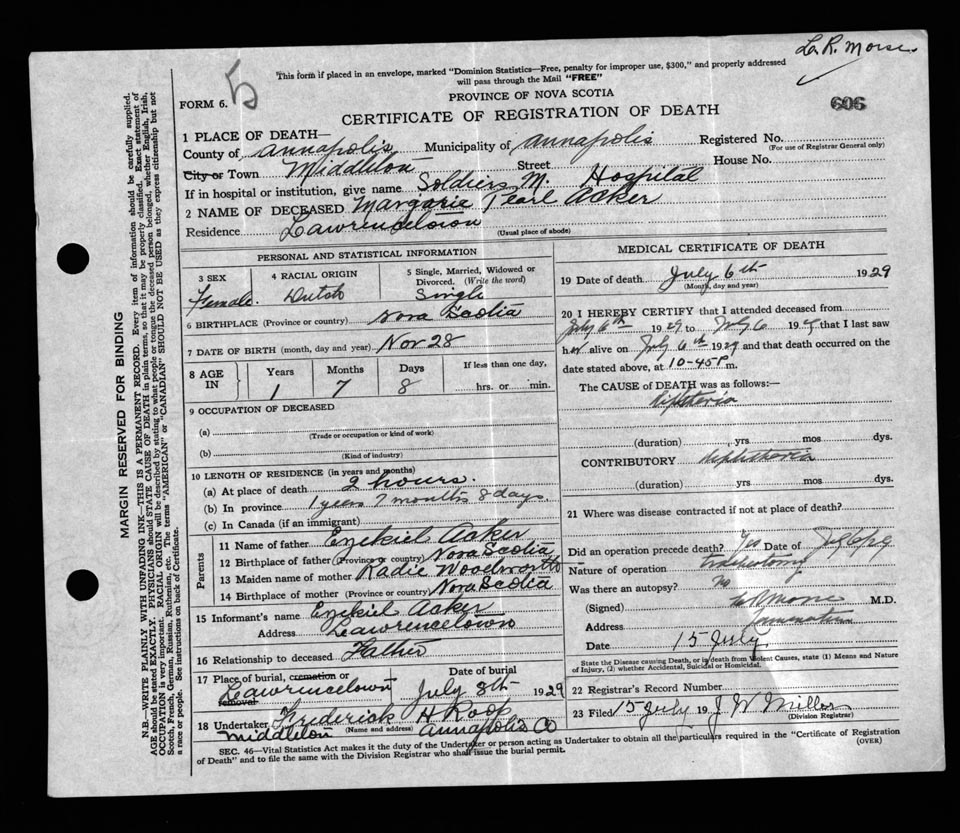 L. R. Morse.
5
This form if placed in an envelope, marked "Dominion Statistics—Free, penalty for improper use, $300," and properly addressed
will pass through the Mail "FREE"
PROVINCE OF NOVA SCOTIA
FORM 6.
606
CERTIFICATE OF REGISTRATION OF DEATH
1 PLACE OF DEATH—
County of Annapolis Municipality of Annapolis Registered No.
(For use of Registrar General only)
City or Town Middleton Street House No.
If in hospital or institution, give name Soldiers M. Hospital
2 NAME OF DECEASED Margarie Pearl Acker
Residence Lawrencetown
(Usual place of abode)
PERSONAL AND STATISTICAL INFORMATION
3 SEX Female.
4 RACIAL ORIGIN Dutch
5 Single, Married, Widowed or
Divorced. (Write the word)
Single
6 BIRTHPLACE (Province or country) Nova Scotia
7 DATE OF BIRTH (month, day and year) Nov 28
8 AGE IN Years 1 Months 7 Days 8 If less than one day,
hrs. or min.
9 OCCUPATION OF DECEASED
(a)
(Trade or occupation or kind of work)
(b)
(Kind of industry)
10 LENGTH OF RESIDENCE (in years and months)
(a) At place of death 2 hours.
(b) In province 1 years 7 months 8 days.
(c) In Canada (if an immigrant)
Parents
11 Name of father Ezekiel Acker
12 Birthplace of father (Province or country) Nova Scotia
13 Maiden name of mother Radie Woodworth
14 Birthplace of mother (Province or country) Nova Scotia
15 Informant's name Ezekiel Acker
Address Lawrencetown
16 Relationship to deceased Father
17 Place of burial, cremation or removal Date of burial
Lawrencetown July 8th 1929
18 Undertaker Frederick H Roop
(Name and address)
Middleton Annapolis Co
MEDICAL CERTIFICATE OF DEATH
19 Date of death July 6th 1929
(Month, day and year)
20 I HEREBY CERTIFY that I attended deceased from
July 6th 1929 to July 6 192 that I last saw
her alive on July 6th 1929 and that death occurred on the
date stated above, at 10-45 P m.
The CAUSE of DEATH was as follows:—
diphtheria
(duration) yrs mos dys.
CONTRIBUTORY diphtheria
(duration) yrs. mos. dys.
21 Where was disease contracted if not at place of death?
Did an operation precede death? Yes Date of July 6
Nature of operation
Was there an autopsy? no
(Signed) L R Morse M.D.
Address
Date 15 July
State the Disease causing Death, or is death from Violent Causes, state (1) Means and Nature
of Injury, (2) whether Accidental, Suicidal or Homicidal.
22 Registrar's Record Number
23 Filed 15 July 19 J W Miller
(Division Registrar)
SEC. 46—Vital Statistics Act makes it the duty of the Undertaker or person acting as Undertaker to obtain all the particulars required in the "Certificate of Registration
of Death" and to file the same with the Division Registrar who shall issue the burial permit.
(OVER)
MARGIN RESERVED FOR BINDING
N.B.—WRITE PLAINLY WITH UNFADING INK—THIS IS A PERMANENT RECORD. Every item of information should be carefully supplied.
AGE should be stated EXACTLY. PHYSICIANS should STATE CAUSE OF DEATH in plain terms, so that it may be properly classified. Exact statement of
OCCUPATION is very important. RACIAL ORIGIN will be described by stating to what people or tongue the deceased person belonged, whether English, Irish,
Scotch, French, German, Russian, Ruthenian, etc. The terms "AMERICAN" or "CANADIAN" SHOULD NOT BE USED as they express citizenship but not
a race or people. See instructions on back of Certificate.